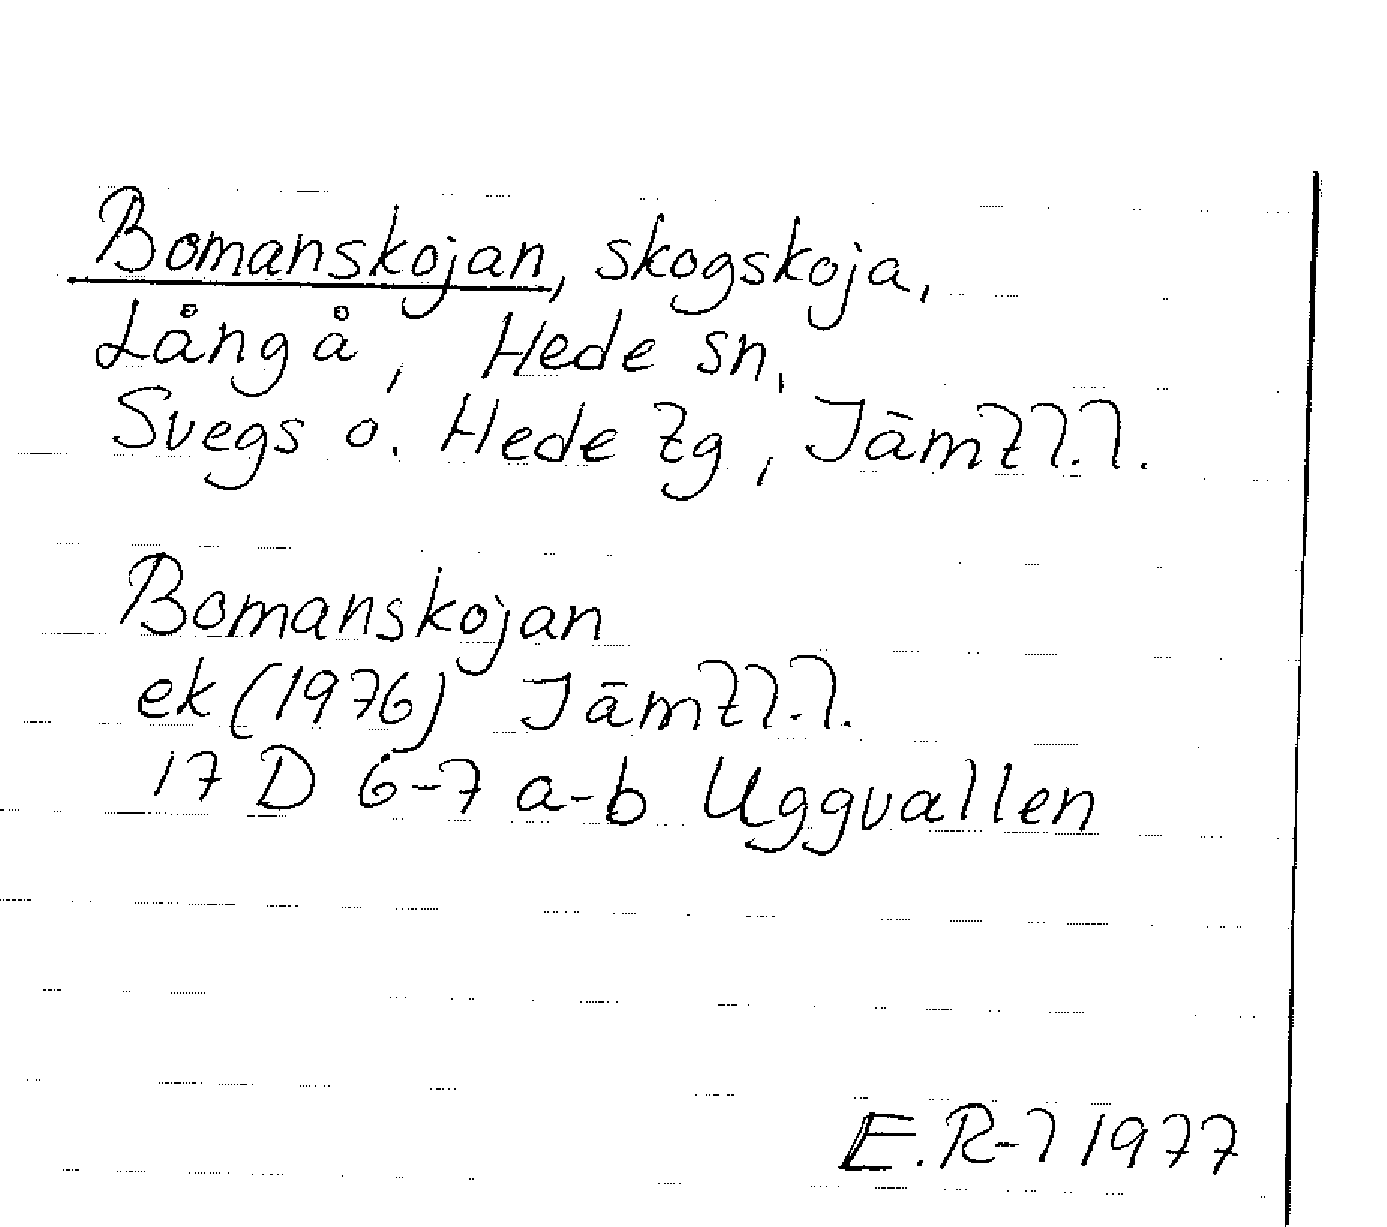 Bomanskojan, skogskoja,
Långå, Hede sn,
Svegs o. Hede tg, Jämtl.l.
Bomanskojan
ek (1976) Jämtl.l.
17 D 6-7 a-b Uggvallen
E.R-l 1977